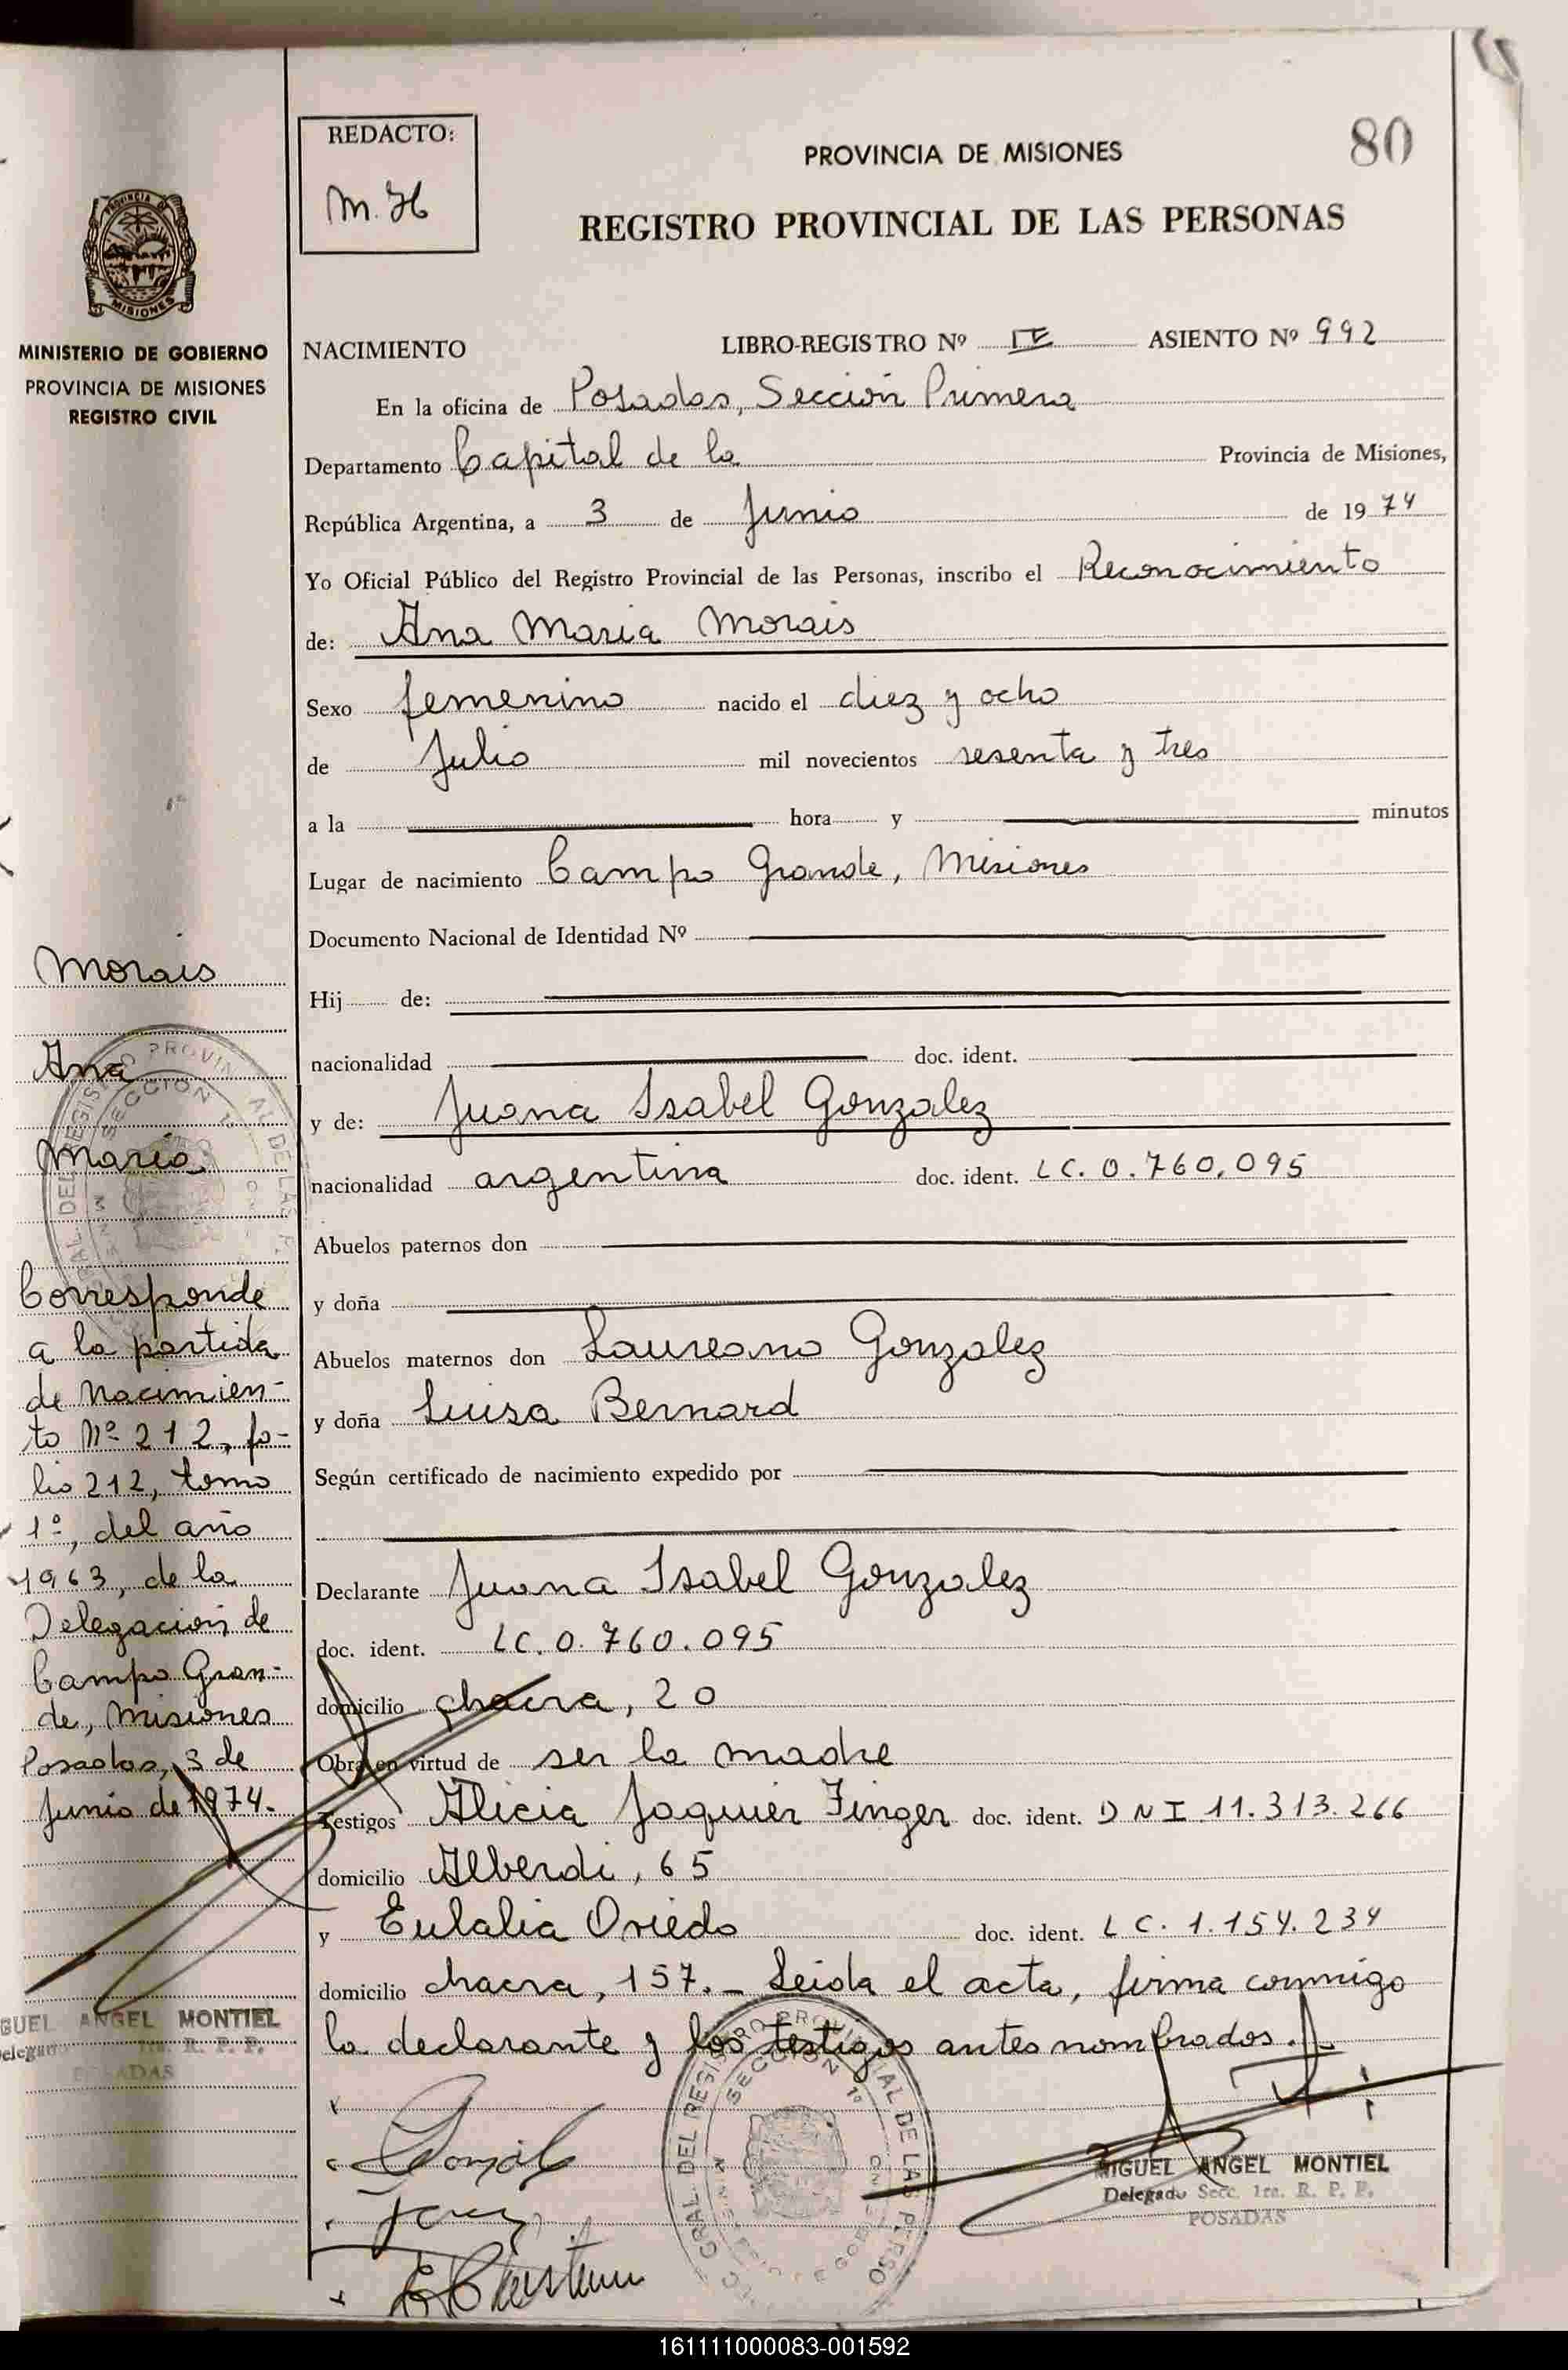 REDACTO:
M. H
PROVINCIA DE MISIONES
80
REGISTRO PROVINCIAL DE LAS PERSONAS
PROVINCIA DE
MISIONES
MINISTERIO DE GOBIERNO
PROVINCIA DE MISIONES
REGISTRO CIVIL
NACIMIENTO LIBRO-REGISTRO Nº IV ASIENTO Nº 992
En la oficina de Posadas, Sección Primera
Departamento Capital de la Provincia de Misiones,
República Argentina, a 3 de Junio de 1974
Yo Oficial Público del Registro Provincial de las Personas, inscribo el Reconocimiento
de: Ana Maria Morais
Sexo femenino nacido el diez y ocho
de Julio mil novecientos sesenta y tres
a la hora y minutos
Lugar de nacimiento Campo Grande, Misiones
Documento Nacional de Identidad Nº
Hij de:
nacionalidad doc. ident.
y de: Juana Isabel Gonzalez
nacionalidad argentina doc. ident. LC. 0.760.095
Abuelos paternos don
y doña
Abuelos maternos don Laureano Gonzalez
y doña Luisa Bernard
Según certificado de nacimiento expedido por
Declarante Juana Isabel Gonzalez
doc. ident. LC. 0.760.095
domicilio chacra, 20
Obra en virtud de ser la madre
Testigos Alicia Joquier Finger doc. ident. DNI 11.313.266
domicilio Alberdi, 65
y Eulalia Oviedo doc. ident. LC. 1.154.234
domicilio chacra, 157.- Leida el acta, firma conmigo
la declarante y los testigos antes nombrados.
MIGUEL ANGEL MONTIEL
Delegado Secc. 1ra. R. P. P.
POSADAS
Morais
Ana
Maria
Corresponde
a la partida
de Nacimien-
to Nº 212, fo-
lio 212, tomo
1º, del año
1963, de la
Delegación de
Campo Gran-
de, Misiones
Posadas, 3 de
Junio de 1974.
GUEL ANGEL MONTIEL
Delegado 1ra. R. P. P.
POSADAS
161111000083-001592